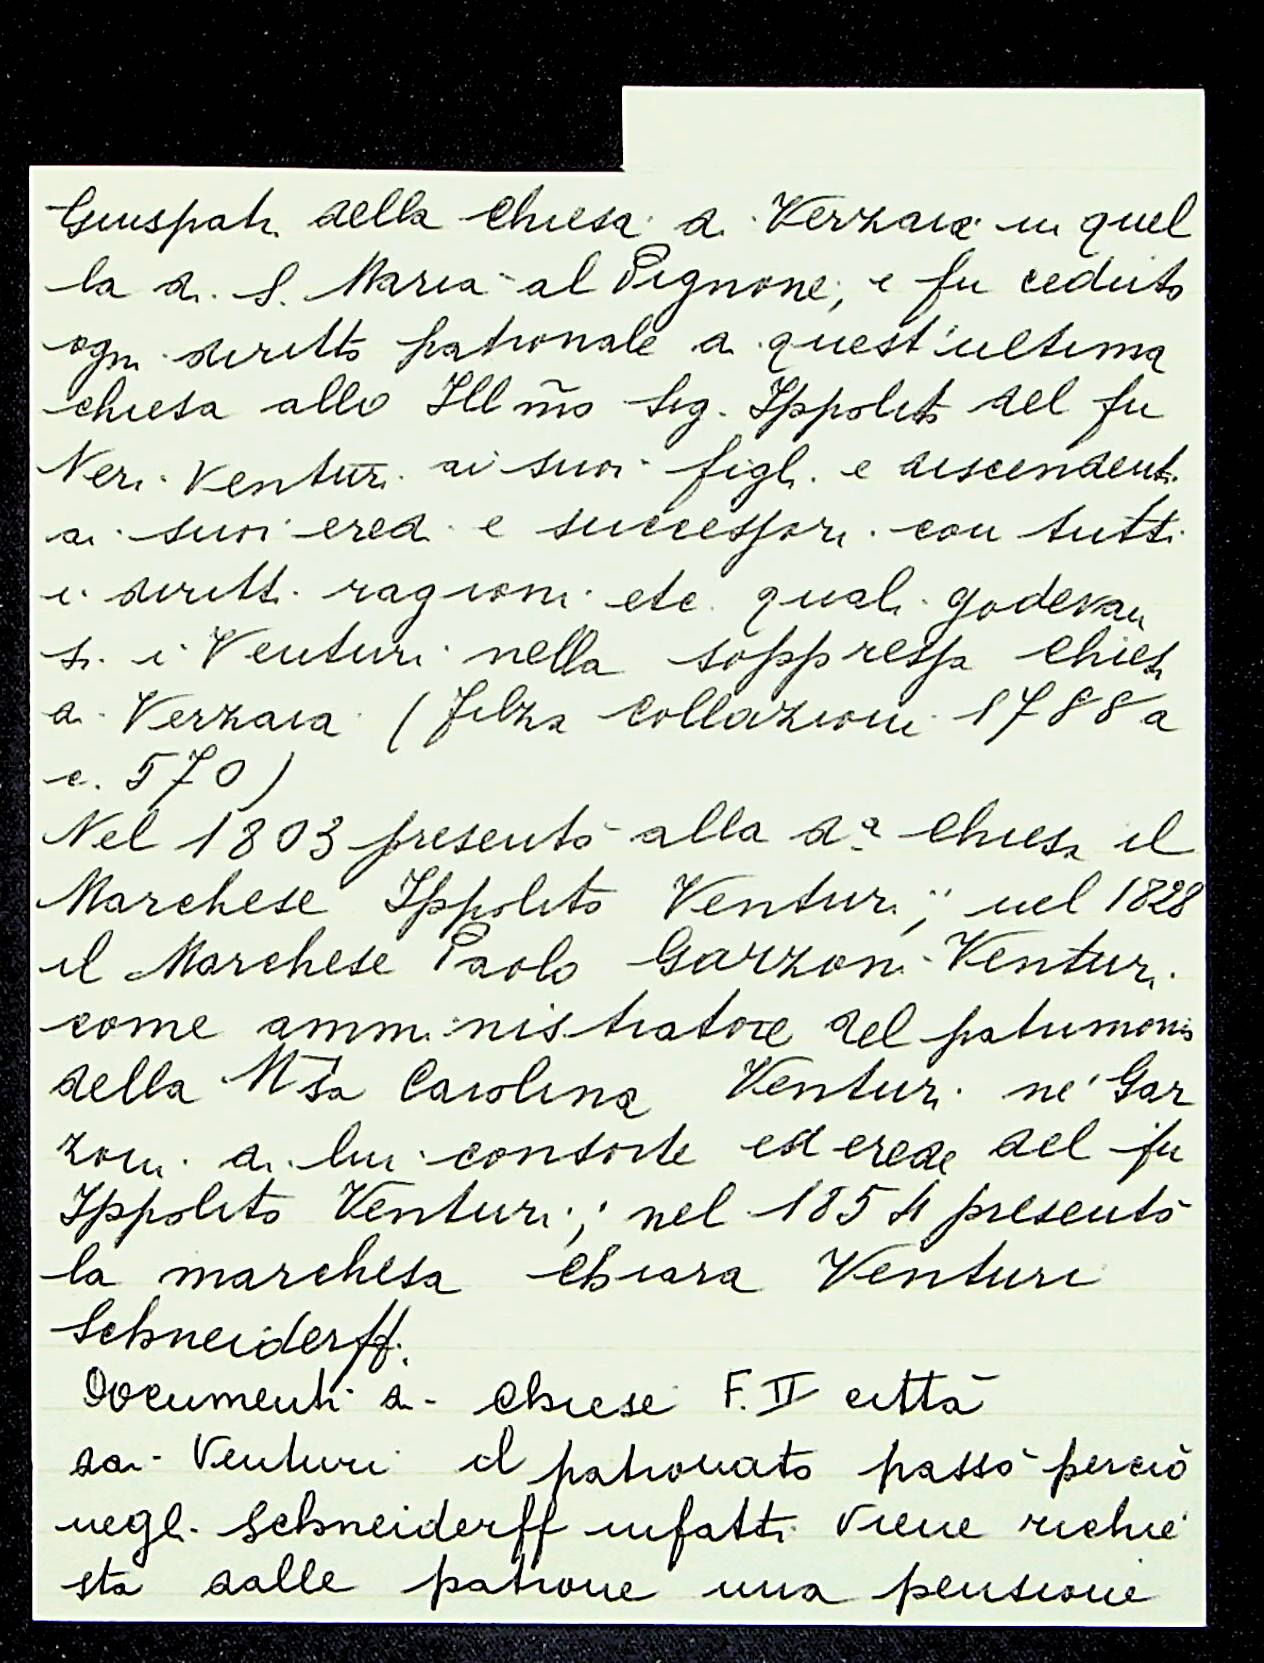 Giuspati della Chiesa di Verzaia in quel
la di S. Maria al Pignone, e fu ceduto
ogni diritto patronale di quest'ultima
chiesa allo Ill m̃o Sig. Ippolito del fu
Neri Venturi ai suoi figli e discendenti
ai suoi eredi e successori con tutti
i diritti ragioni etc quali godevan
si i Venturi nella soppressa Chiesa
di Verzaia (Filza Collazioni 1788 a
c. 570)
Nel 1803 presentò alla dª Chiesa il
Marchese Ippolito Venturi; nel 1828
il Marchese Paolo Garzoni-Venturi
come amministratore del patrimonio
della Msa Carolina Venturi ne' Gar
zoni di lui consorte ed erede del fu
Ippolito Venturi; nel 1854 presentò
la marchesa Chiara Venturi
Schneiderff.
Documenti di Chiese F. II città
dai Venturi il patronato passò perciò
negli Schneiderff infatti viene richie
sta dalle patrone una pensione